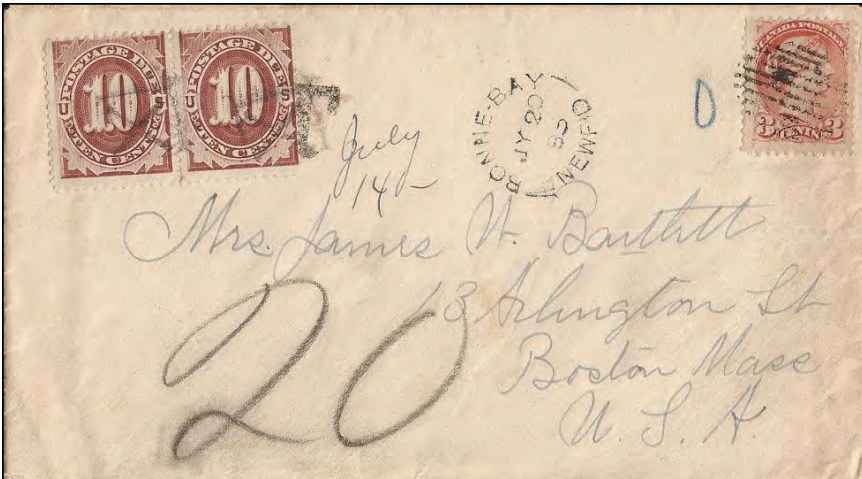 POSTAGE DUE
U S
10
TEN CENTS
POSTAGE DUE
U S
10
TEN CENTS
BONNIE-BAY
JY 20
85
NEWF'D
D
CANADA POSTAGE
3 CENTS 3
July
14
Mrs. James W. Bartlett
13 Arlington St
Boston Mass
U. S. A.
20